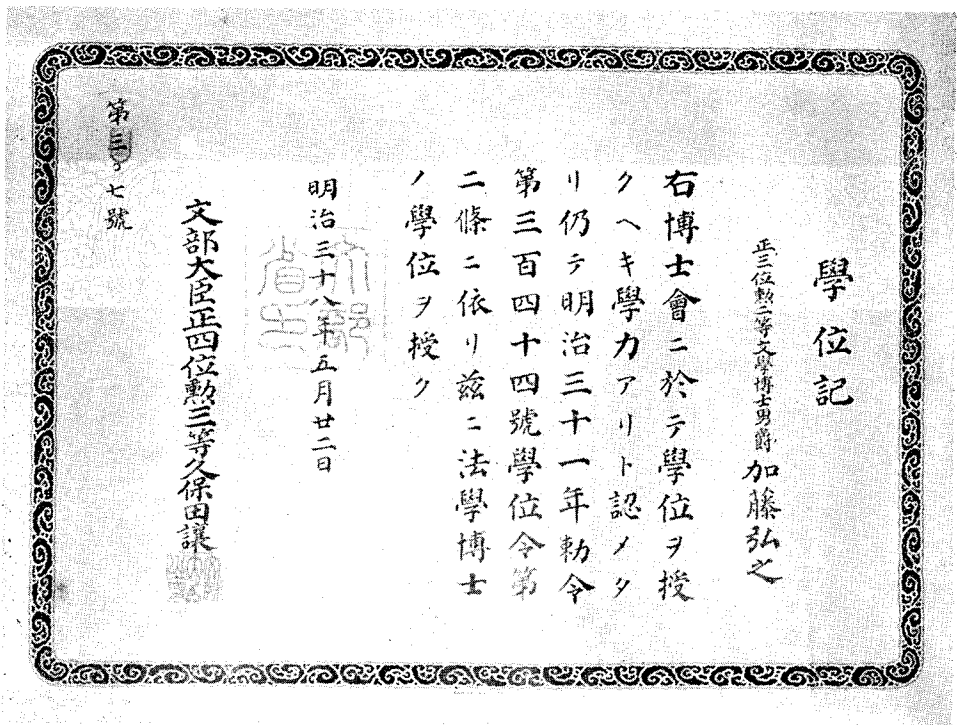 學位記
正三位勲二等文學博士男爵加藤弘之
右博士會ニ於テ學位ヲ授
クヘキ學力アリト認メタ
リ仍テ明治三十一年勅令
第三百四十四號學位令第
二條ニ依リ茲ニ法學博士
ノ學位ヲ授ク
明治三十八年五月廿二日
文部省之印
文部大臣正四位勲三等久保田讓
第三〇七號